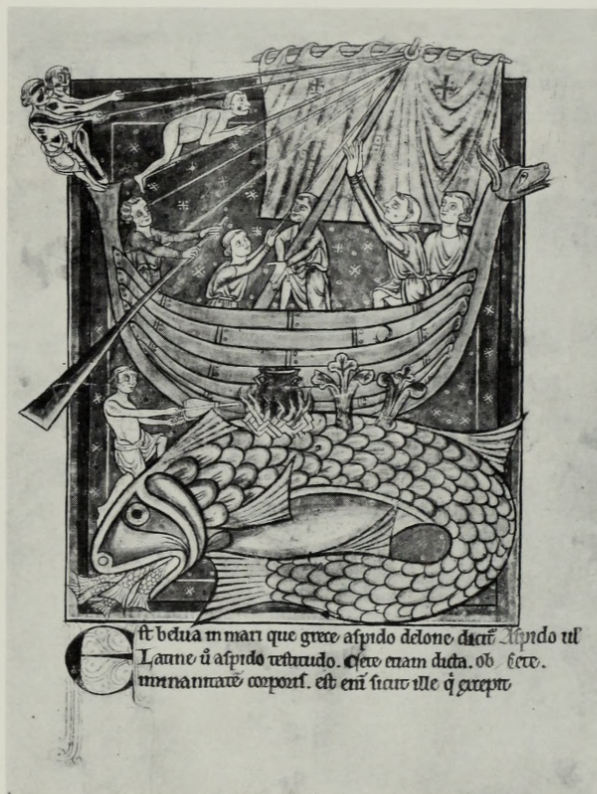 Est belua in mari que grece aspido delone dicit̃ Aspido ul̃
Latine ũ aspido testitudo. Cete etiam dicta. ob Cete.
inmanitatẽ corporis. est enĩ sicut ille q̃ excepit